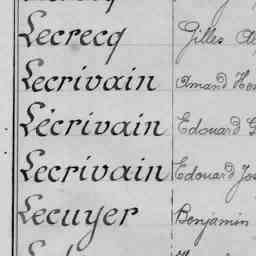 Lecrecq Gilles
Lecrivain Amand
Lécrivain Edouard
Lecrivain Edouard
Lecuyer Benjamin